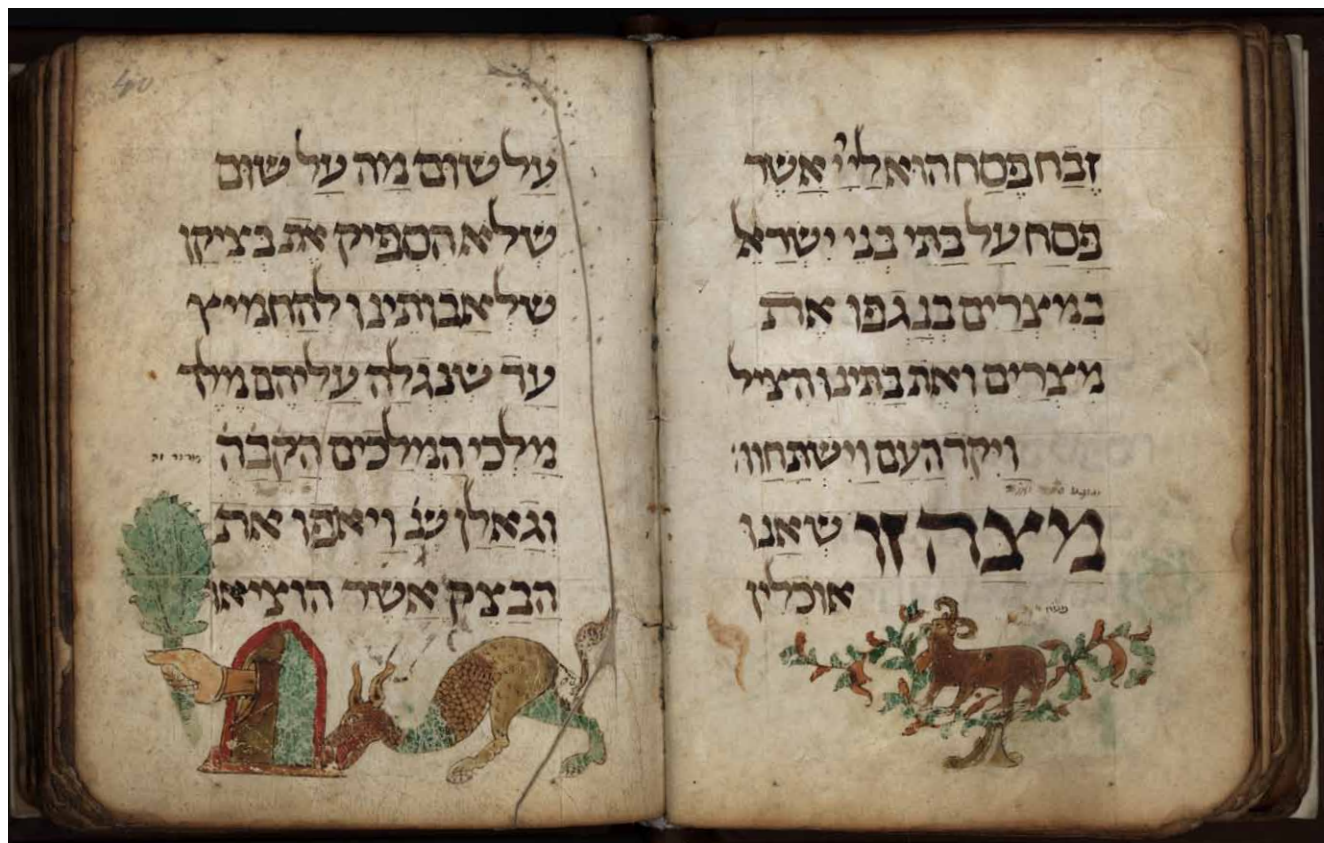 זבח פסח הוא ליי אשר
פסח על בתי בני ישראל
במצרים בנגפו את
מצרים ואת בתינו הציל
ויקד העם וישתחוו:
מצה זו שאנו
אוכלין
40
על שום מה על שום
שלא הספיק את בציקן
של אבותינו להחמיץ
עד שנגלה עליהם מלך
מלכי המלכים הקבה
וגאלן שנ ויאפו את
הבצק אשר הוציאו